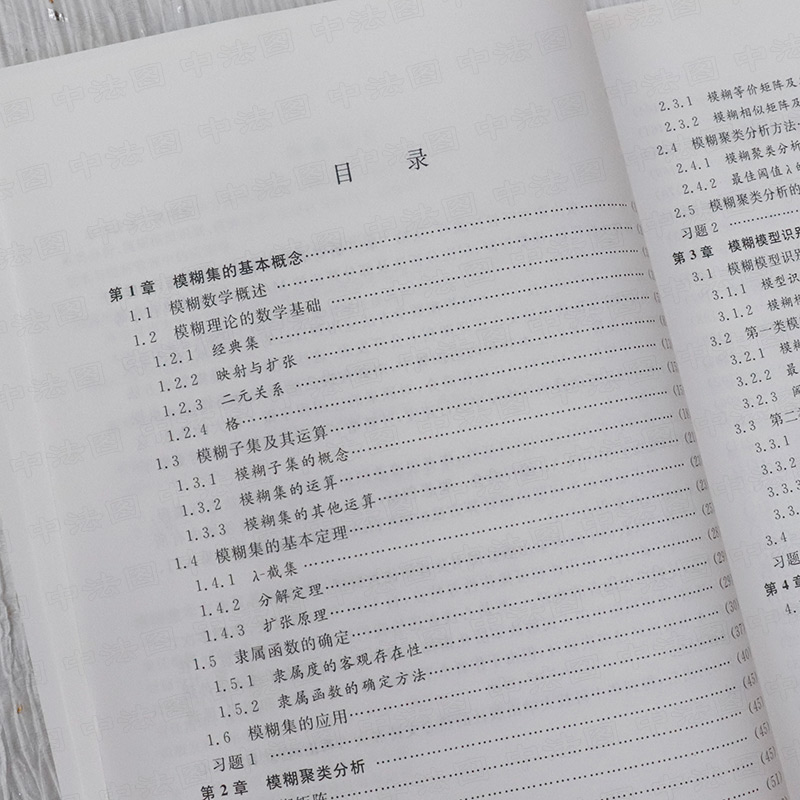 目 录
第1章 模糊集的基本概念
1.1 模糊数学概述
1.2 模糊理论的数学基础
1.2.1 经典集
1.2.2 映射与扩张
1.2.3 二元关系
1.2.4 格
1.3 模糊子集及其运算
1.3.1 模糊子集的概念
1.3.2 模糊集的运算
1.3.3 模糊集的其他运算
1.4 模糊集的基本定理
1.4.1 λ-截集
1.4.2 分解定理
1.4.3 扩张原理
1.5 隶属函数的确定
1.5.1 隶属度的客观存在性
1.5.2 隶属函数的确定方法
1.6 模糊集的应用
习题1
第2章 模糊聚类分析
2.3.1 模糊等价矩阵及
2.3.2 模糊相似矩阵及
2.4 模糊聚类分析方法
2.4.1 模糊聚类分析
2.4.2 最佳阈值λ的
2.5 模糊聚类分析的
习题2
第3章 模糊模型识别
3.1 模糊模型识别
3.1.1 模型识
3.1.2 模糊模
3.2 第一类模
3.2.1 模糊
3.2.2 最
3.2.3 阈
3.3 第二
3.3.1
3.3.2
3.3.3
3.3.4
3.4
习题
第4章
4.
中法图